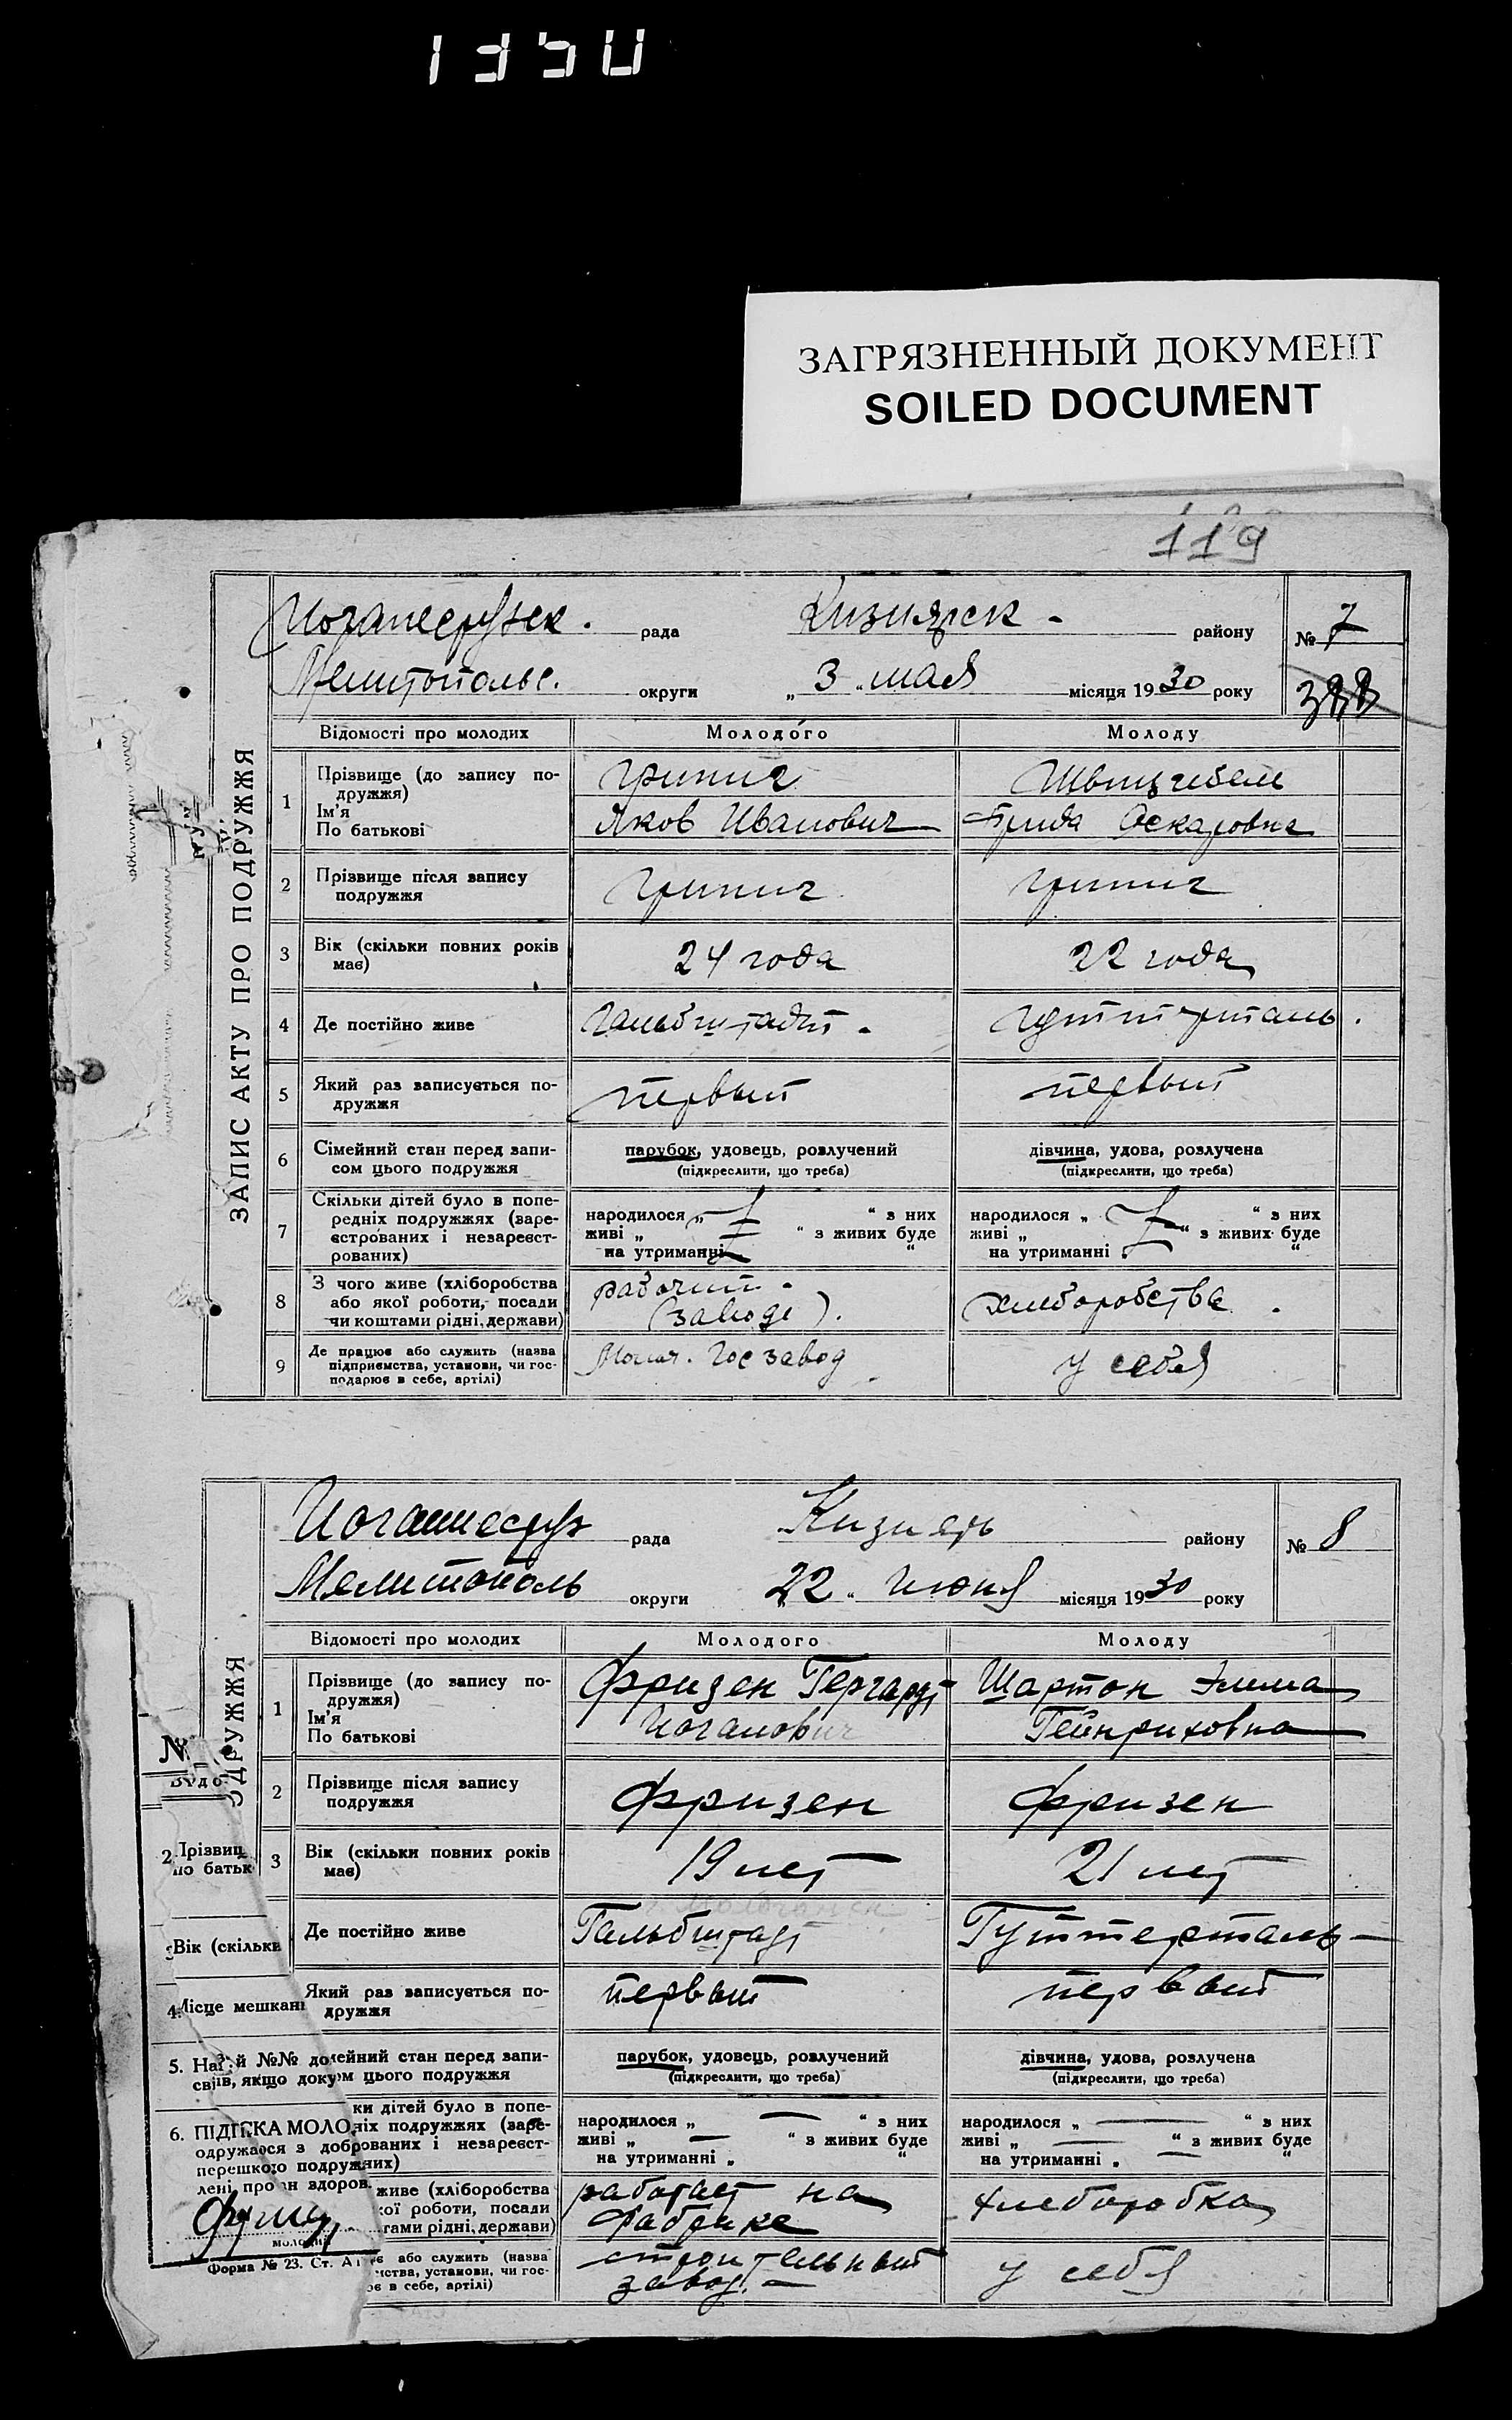 1350
ЗАГРЯЗНЕННЫЙ ДОКУМЕНТ
SOILED DOCUMENT
119
ЗАПИС АКТУ ПРО ПОДРУЖЖЯ
рада
району
№ 7
округи „ 3 „ мая місяця 1930 року
388
Відомості про молодих
Молодого
Молоду
1
Прізвище (до запису по-
дружжя)
Ім'я
По батькові
Яков Иванович
Оскаровна
2
Прізвище після запису
подружжя
3
Вік (скільки повних років
має)
24 года
22 года
4
Де постійно живе
Гальбштадт.
5
Який раз записується по-
дружжя
первый
первый
6
Сімейний стан перед запи-
сом цього подружжя
парубок, удовець, розлучений
(підкреслити, що треба)
дівчина, удова, розлучена
(підкреслити, що треба)
7
Скільки дітей було в попе-
редніх подружжях (заре-
єстрованих і незареєст-
рованих)
народилося „ “ з них
живі „ “ з живих буде
на утриманні “
народилося „ “ з них
живі „ “ з живих буде
на утриманні “
8
З чого живе (хліборобства
або якої роботи, посади
чи коштами рідні, держави)
рабочий.
(заводе).
хлеборобства.
9
Де працює або служить (назва
підприємства, установи, чи гос-
подарює в себе, артілі)
Госзавод
у себя
рада
району
№ 8
Мелитополь округи 22 „ июня місяця 1930 року
Відомості про молодих
Молодого
Молоду
1
Прізвище (до запису по-
дружжя)
Ім'я
По батькові
Фризен Гергард
Иоганович
Шартон Эмма
Гейнриховна
2
Прізвище після запису
подружжя
Фризен
Фризен
3
Вік (скільки повних років
має)
19 лет
21 лет
Де постійно живе
Гальбштадт
Гуттерталь
Який раз записується по-
дружжя
первый
первый
ейний стан перед запи-
м цього подружжя
парубок, удовець, розлучений
(підкреслити, що треба)
дівчина, удова, розлучена
(підкреслити, що треба)
ки дітей було в попе-
ніх подружжях (заре-
рованих і незареєст-
них)
народилося „ “ з них
живі „ “ з живих буде
на утриманні „ “
народилося „ “ з них
живі „ “ з живих буде
на утриманні „ “
живе (хліборобства
кої роботи, посади
тами рідні, держави)
работает на
фабрике
хлеборобка
або служить (назва
мства, установи, чи гос-
ює в себе, артілі)
строительный
завод.
у себя
ДРУЖЖЯ
№
2. Прізвищ
по батьк
Вік (скільки
4. Місце мешкан
5.
якщо доку
6. ПІДПИСКА МОЛО
одружаюся з доб
перешкою подруж
лені про
здоров.
молодий
Форма № 23. Ст.